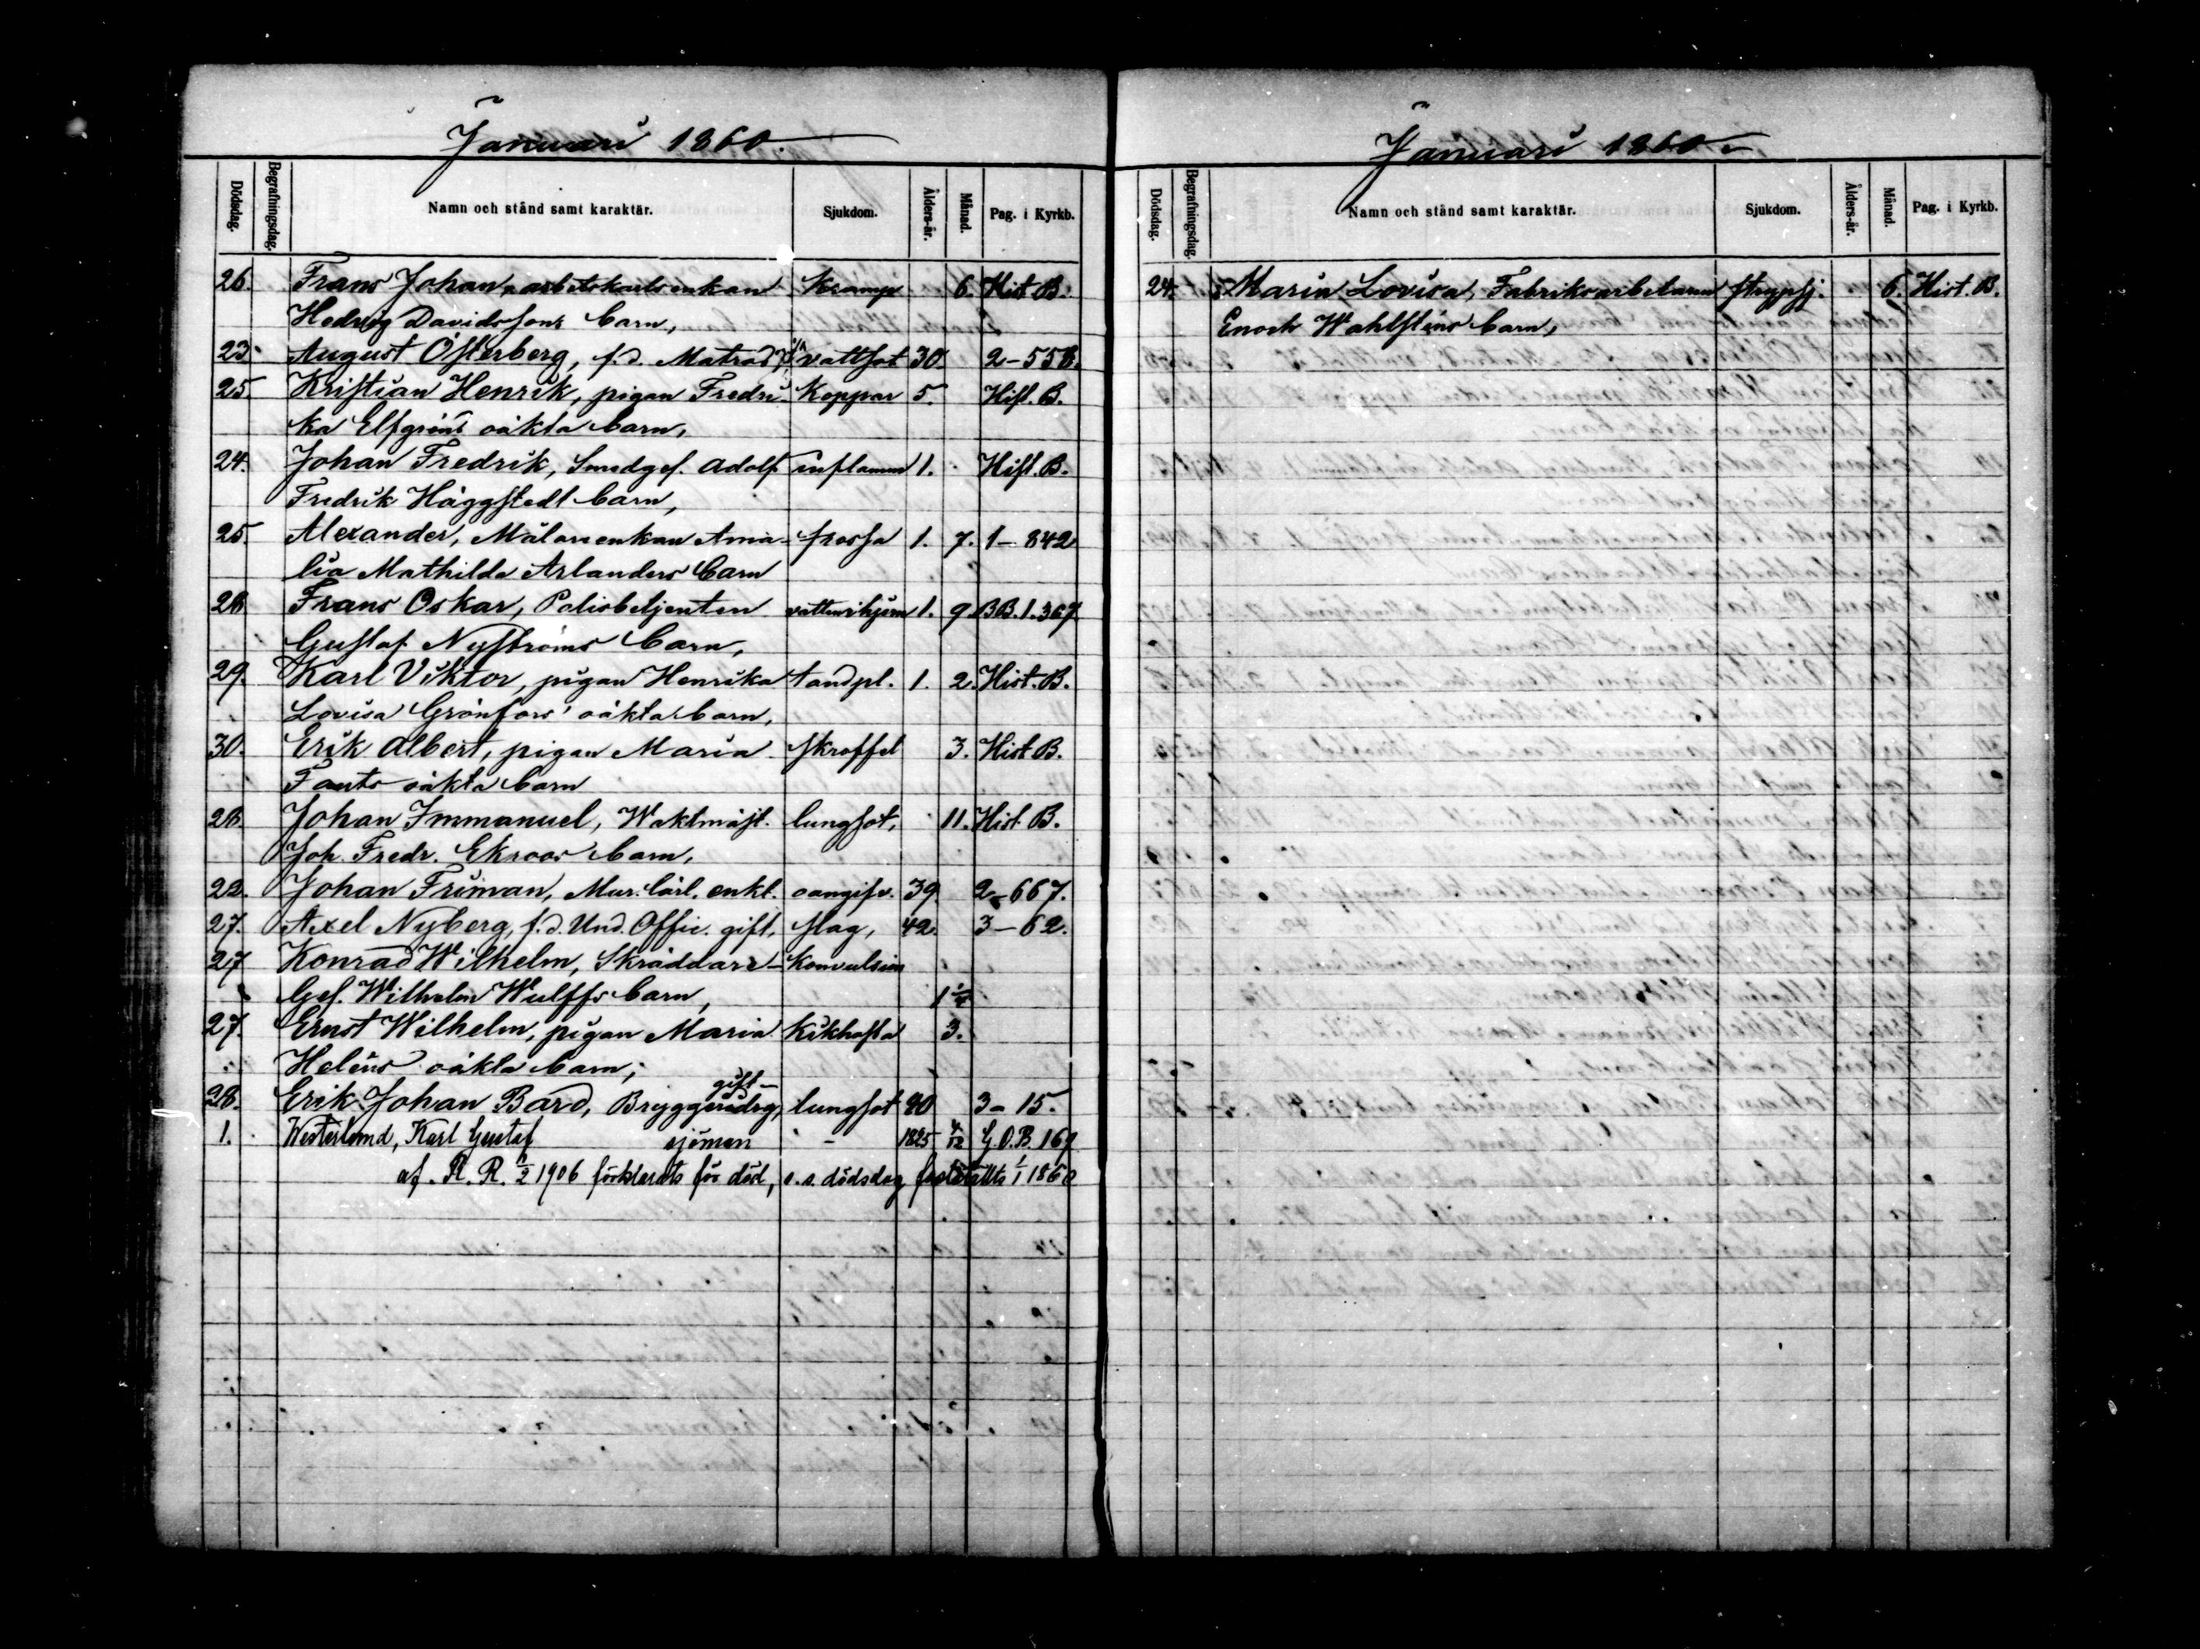 Januari 1860.
Dödsdag. Begrafningsdag. Namn och stånd samt karaktär. Sjukdom. Ålders-år. Månad. Pag. i Kyrkb.
26. Frans Johan, arbetskarlsenkan Kramp 6. Hist. B.
Hedvig Davidssons barn,
23. August Österberg, f.d. Matros, vattsot 30. 2-558.
25. Kristian Henrik, pigan Fredri- Koppor 5. Hist. B.
ka Elfgréns oäkta barn,
24. Johan Fredrik, Smedgef. Adolf inflamm 1. Hist. B.
Fredrik Häggstedt barn,
25. Alexander, Målarenkan Ama- frossa 1. 7. 1-842
lia Mathilda Arlanders barn
28. Frans Oskar, Polisbetjenten vattenihjern 1. 9. BB.1.367
Gustaf Nyströms barn,
29. Karl Viktor, pigan Henrika tandpl. 1. 2. Hist. B.
Lovisa Grönfors' oäkta barn,
30. Erik Albert, pigan Maria skroffel 3. Hist B.
Fants oäkta barn
28. Johan Immanuel, Waktmäst. lungsot, 11. Hist B.
Joh. Fredr. Ekroos barn,
22. Johan Friman, Mur. lärl. enkl. oangifv. 39 2-667.
27. Axel Nyberg, f.d. Und. Offic. gift, slag, 42. 3-62.
27 Konrad Wilhelm, Skräddare- Konvulsion
Gef. Wilhelm Wulffs barn,
27. Ernst Wilhelm, pigan Maria Kikhosta 3.
Heléns oäkta barn;
gift-
28. Erik Johan Bard, Bryggeridrg, lungsot 40 3-15.
1. Westerlund, Karl Gustaf sjöman - 1825 4/12 G.O.B. 169
af. R. R. 1/2 1906 förklarats för död, o. s. dödsdag fastställts 1/1 1860
Januari 1860.
Dödsdag. Begrafningsdag. Namn och stånd samt karaktär. Sjukdom. Ålders-år. Månad. Pag. i Kyrkb.
24. Maria Lovisa, Fabriksarbetaren strypsj. 6. Hist. B.
Enoch Wahlsténs barn,